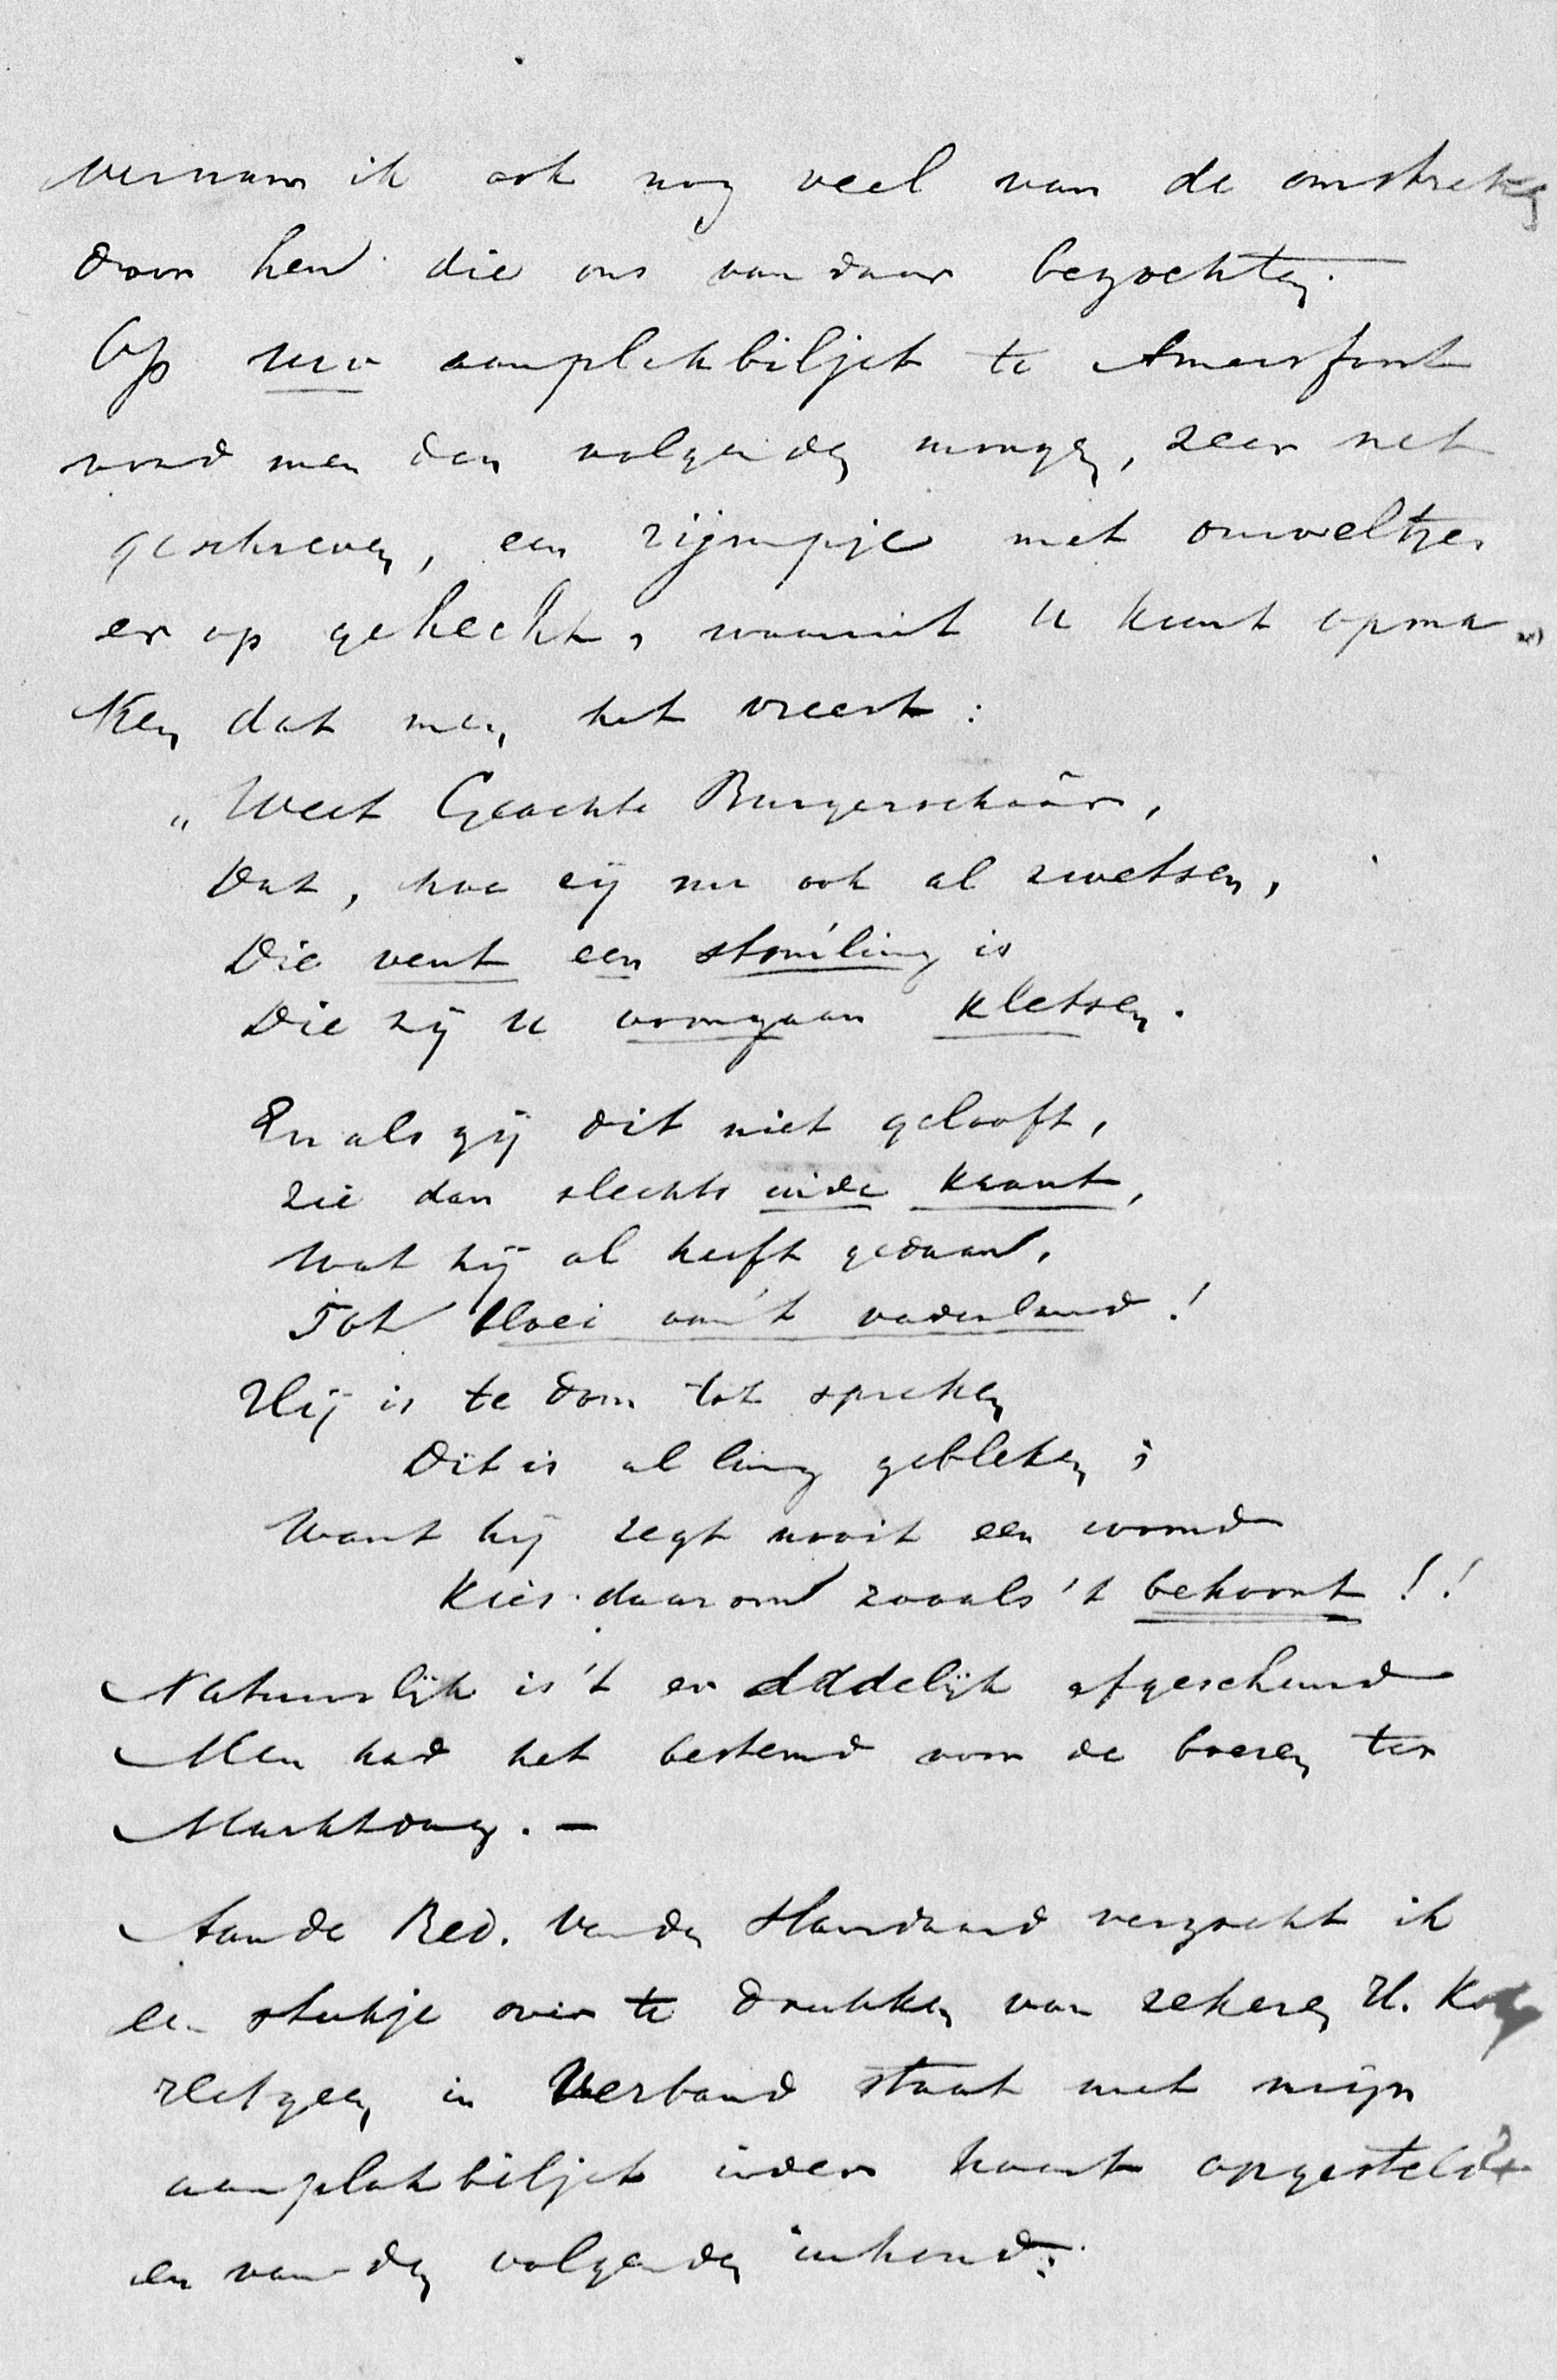 vernam ik ook nog veel van de omstreken
door hen die ons van daar bezochten.
Op uw aanplakbiljet te Amersfoort
vond men den volgenden morgen, zeer net
geschreven, een rijmpje met ouweltjes
er op gehecht, waaruit U kunt opma
ken dat men het vreest:
„Weet Geachte Burgerschaar,
Dat, hoe zij nu ook al zwetsen,
Die vent een stomiling is
Die zij U voorgaan kletsen.
En als gij dit niet gelooft,
zie dan slechts inde krant,
Wat hij al heeft gedaan,
Tot bloei van 't vaderland!
Hij is te dom tot spreken
Dit is al lang gebleken;
Want hij zegt nooit een woord
Kies daarom zooals 't behoort!!
Natuurlijk is 't er dadelijk afgescheurd
Men had het bestemd voor de boeren ter
Marktdag. –
Aan de Red. van den Standaard verzocht ik
een stukje over te drukken van zekeren H.
Hetgeen in Verband staat met mijn
aanplakbiljet in den krant opgesteld
en van den volgenden inhoud: